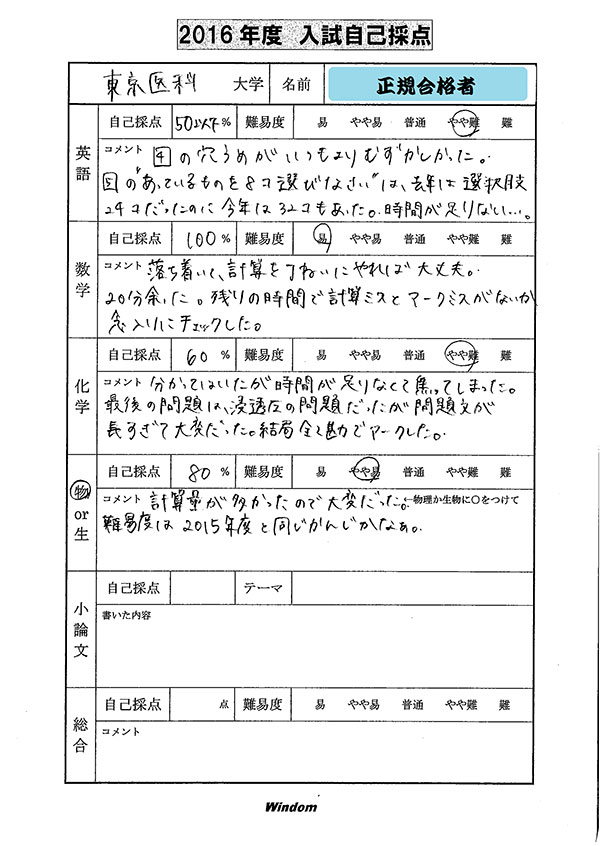 2016年度 入試自己採点
東京医科 大学 名前 正規合格者
英語
自己採点 50以下 % 難易度 易 やや易 普通 やや難 難
コメント 4の穴うめがいつもよりむずかしかった。
の“あっているものを8コ選びなさい”は、去年は選択肢
24コだったのに今年は32コもあった。時間が足りない…。
数学
自己採点 100 % 難易度 易 やや易 普通 やや難 難
コメント 落ち着いて、計算を丁ねいにやれば大丈夫。
20分余った。残りの時間で計算ミスとマークミスがないか
念入りにチェックした。
化学
自己採点 60 % 難易度 易 やや易 普通 やや難 難
コメント 分かってはいたが時間が足りなくて焦ってしまった。
最後の問題は、浸透圧の問題だったが問題文が
長すぎて大変だった。結局全て勘でマークした。
物or生
自己採点 80 % 難易度 易 やや易 普通 やや難 難
コメント 計算量が多かったので大変だった。←物理か生物に○をつけて
難易度は2015年度と同じかんじかなぁ。
小論文
自己採点 テーマ
書いた内容
総合
自己採点 点 難易度 易 やや易 普通 やや難 難
コメント
Windom